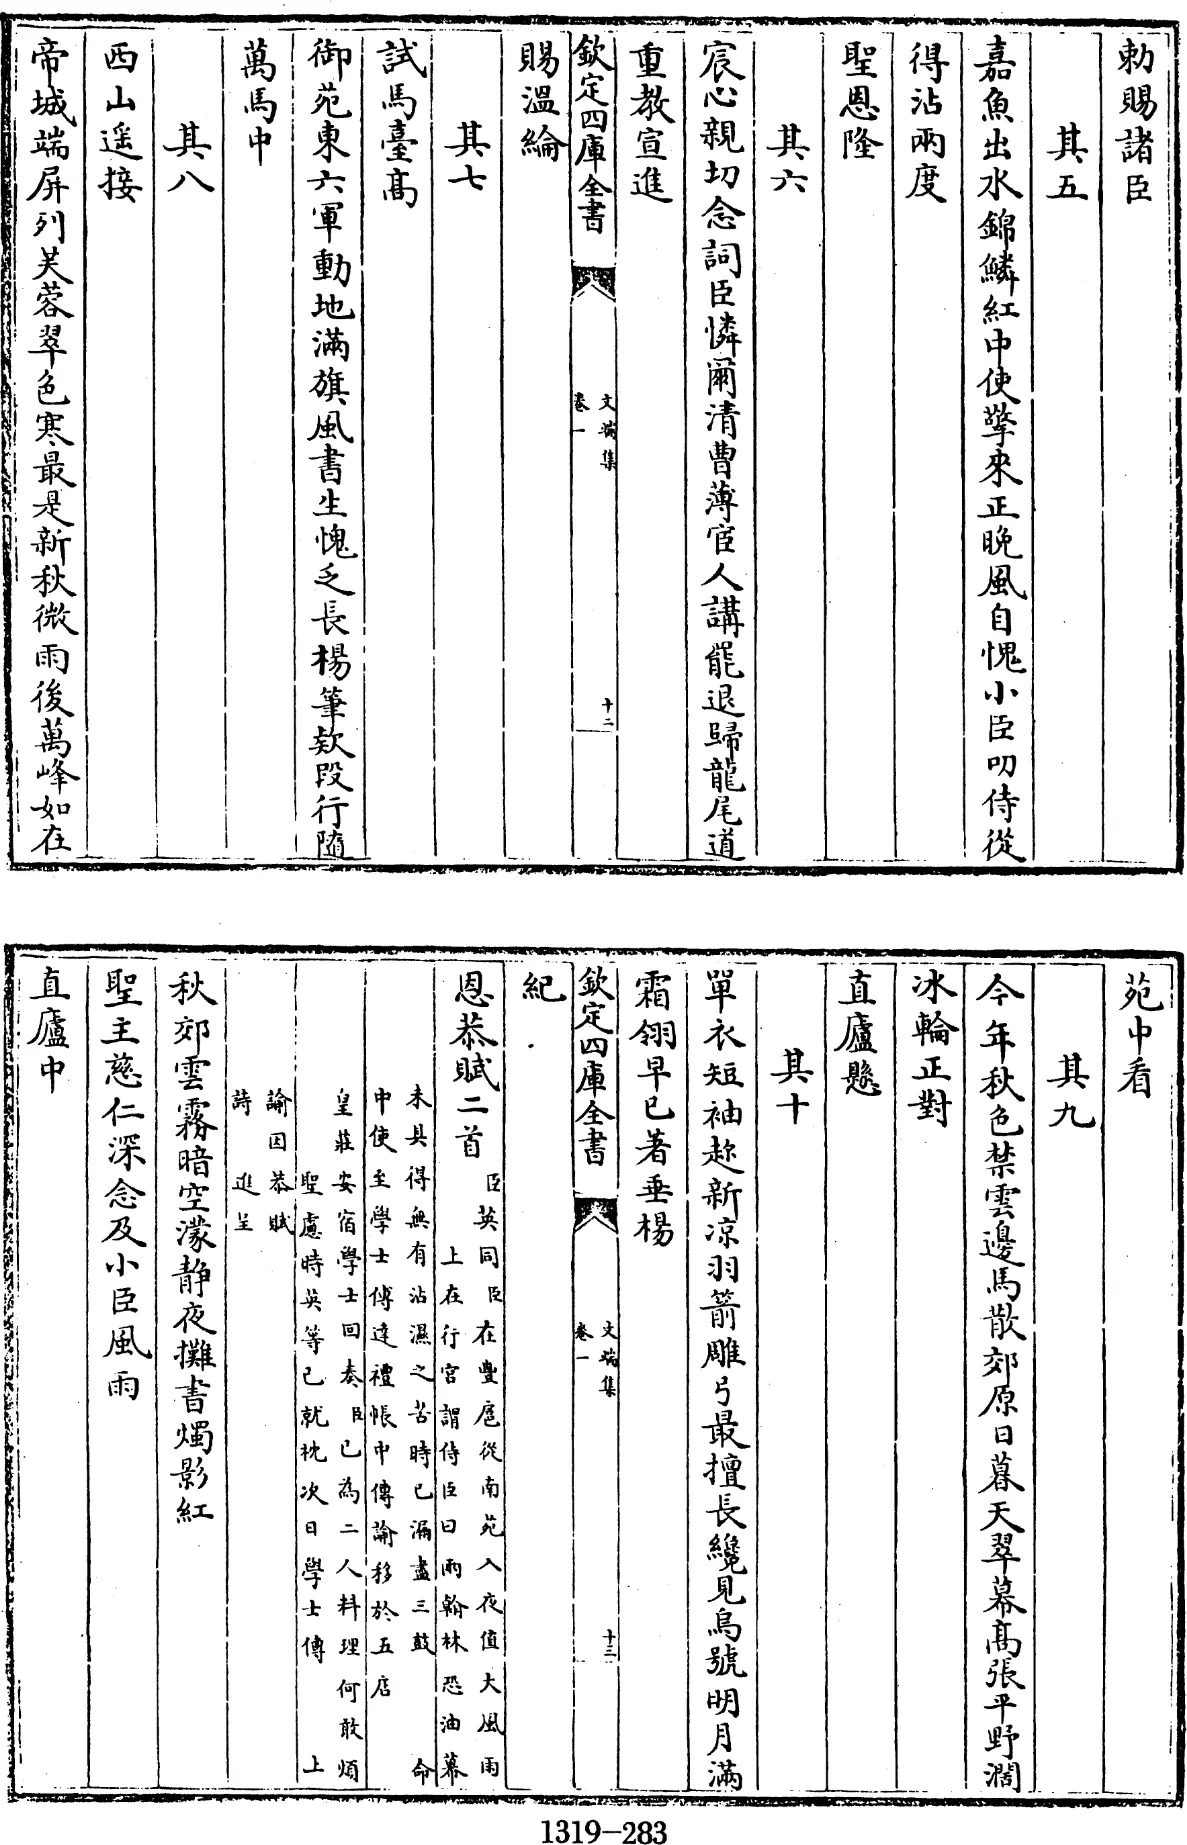 勅賜諸臣
其五
嘉魚出水錦鱗紅中使擎來正晚風自愧小臣叨侍從
得沾兩度
聖恩隆
其六
宸心親切念詞臣憐爾清曹薄宦人講罷退歸龍尾道
重教宣進
欽定四庫全書
文端集
卷一
十二
賜溫綸
其七
試馬臺高
御苑東六軍動地滿旗風書生愧乏長楊筆欵段行隨
萬馬中
其八
西山遥接
帝城端屏列芙蓉翠色寒最是新秋微雨後萬峰如在
苑中看
其九
今年秋色禁雲邊馬散郊原日暮天翠幕高張平野濶
冰輪正對
直廬懸
其十
單衣短袖趂新凉羽箭雕弓最擅長纔見烏號明月滿
霜翎早已著垂楊
欽定四庫全書
文端集
卷一
十三
紀
恩恭賦二首
臣英同臣在豐扈從南苑入夜值大風雨
上在行宮謂侍臣曰兩翰林恐油幕
未具得無有沾濕之苦時已漏盡三鼓 命
中使至學士傅達禮帳中傳諭移於五店
皇莊安宿學士回奏臣已為二人料理何敢煩
聖慮時英等已就枕次日學士傳 上
諭因恭賦
詩進呈
秋郊雲霧暗空濛静夜攤書燭影紅
聖主慈仁深念及小臣風雨
直廬中
1319-283